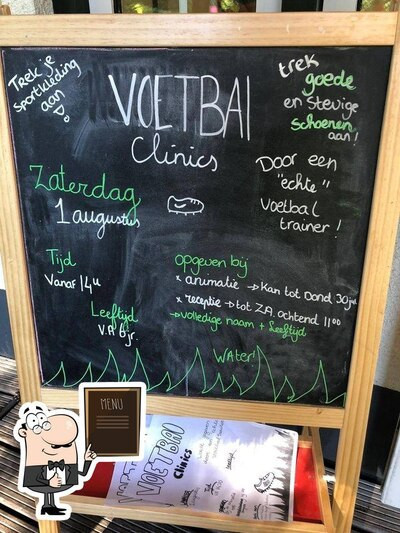 Trek je
sportkleding
aan!
VOETBAl
Clinics
trek
goede
en stevige
schoenen
aan!
Door een
"echte"
voetbal
trainer!
Zaterdag
1 augustus
Tijd
Vanaf 14u
Leeftijd
V.A 6jr.
opgeven bij
* animatie → Kan tot Dond 30 jul
* receptie → tot ZA. ochtend 11 00
→ volledige naam + leeftijd
WAter!
MENU
VOETBAl
Clinics